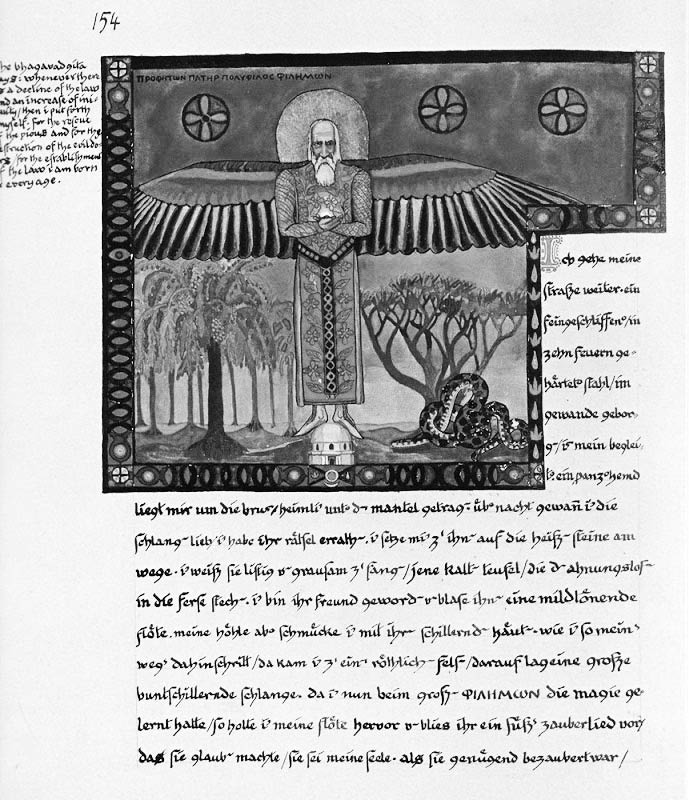 154
the bhagavadgita
says: whenever there
is a decline of the law
and an increase of ini-
quity/then i put forth
myself. for the rescue
of the pious and for the
destruction of the evildo-
ers/for the establishment
of the law i am born
in every age.
ΠΡΟΦΗΤΩΝ ΠΑΤΗΡ ΠΟΛΥΦΙΛΟΣ ΦΙΛΗΜΩΝ
Ich gehe meine
straße weiter. ein
feingeschliffen'/in
zehn feuern ge-
härtet' stahl/im
gewande gebor-
g'/ist mein beglei-
t'. ein panz'hemd
liegt mir um die brust/heimli' unt' d' mantel getrag'. üb' nacht gewañ i' die
schlang' lieb i' habe ihr rätsel errath'. i' setze mi' z' ihn' auf die heiß' steine am
wege. i' weiß sie listig u' grausam z' fang'/jene kalt' teufel/die d' ahnungslos'
in die ferse stech'. i' bin ihr freund geword' u' blase ihn' eine mildtönende
flöte. meine höhle ab' schmücke i' mit ihr' schillernd' häut'. wie i' so mein'
weg' dahinschritt/da kam i' z' ein' röthlich' fels/darauf lag eine große
buntschillernde schlange. da i' nun beim groß' ΦΙΛΗΜΩΝ die magie ge-
lernt hatte/so holte i' meine flöte hervor u' blies ihr ein süß' zauberlied vor/
das sie glaub' machte/sie sei meine seele. als sie genügend bezaubert war/